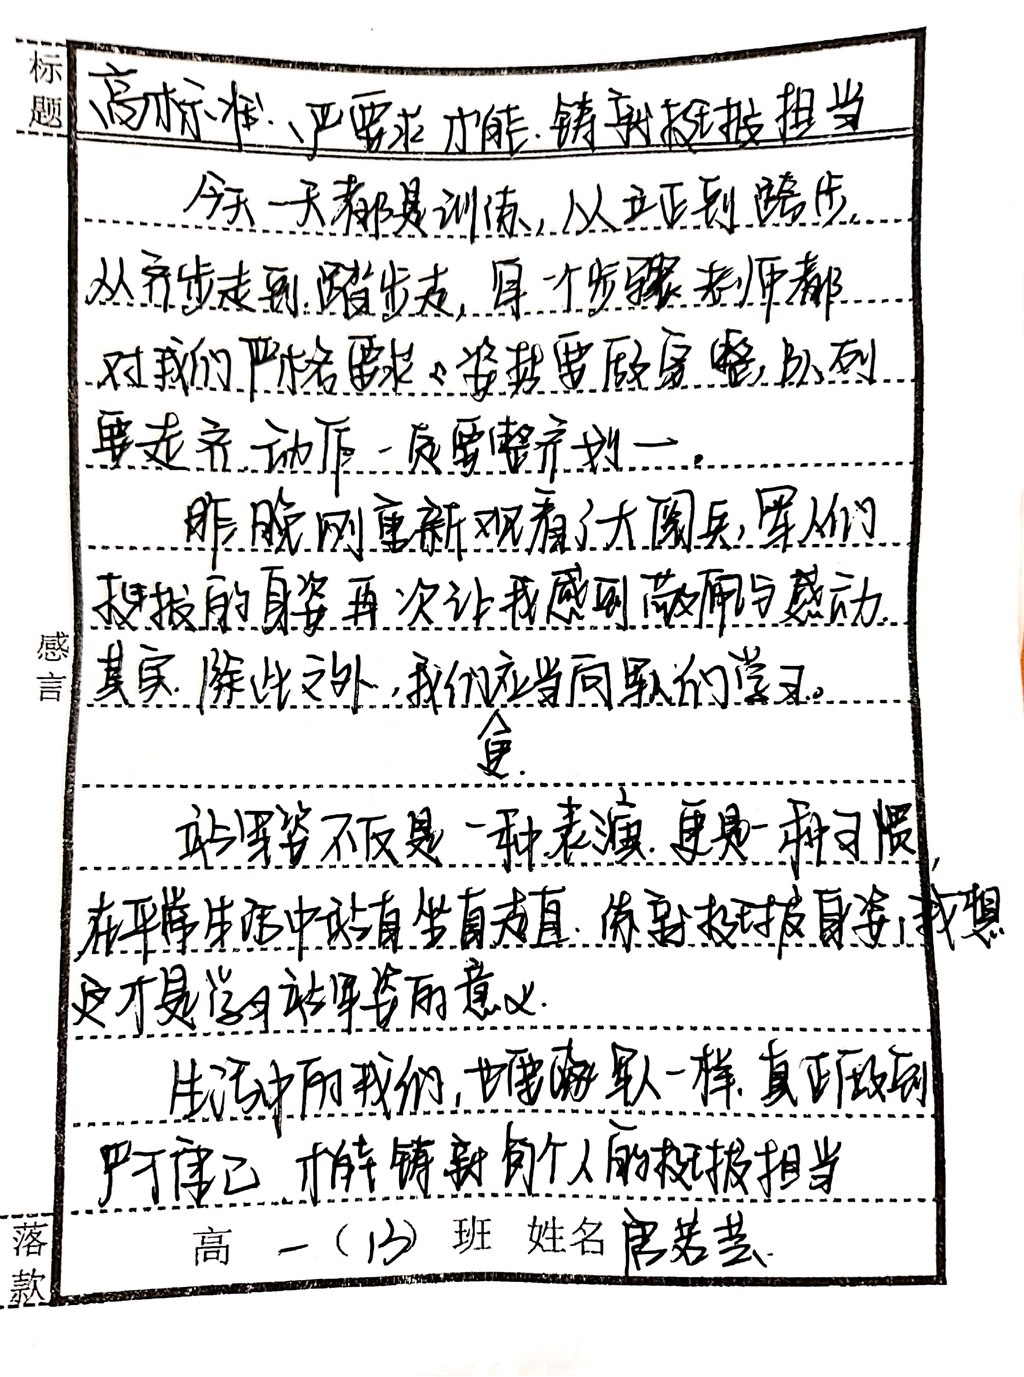 标题
高标准、严要求才能铸新挺拔担当
今天一天都是训练，从立正到跨步，
从齐步走到踏步走，每一个步骤老师都
对我们严格要求。姿势要做完整，队列
要走齐，动作一定要整齐划一。
昨晚刚重新观看了大阅兵，军人们
挺拔的身姿再次让我感到敬佩与感动
其实除此之外，我们应当向军人们学习。
感言
站军姿不仅是一种表演，更是一种习惯，
在平常生活中站直坐直走直，练新挺拔身姿，我想
这才是学习站军姿的意义。
生活中的我们，也要像军人一样，真正做到
严于律己，才能铸新每个人的挺拔担当
落款
高一（13）班 姓名 唐若芸